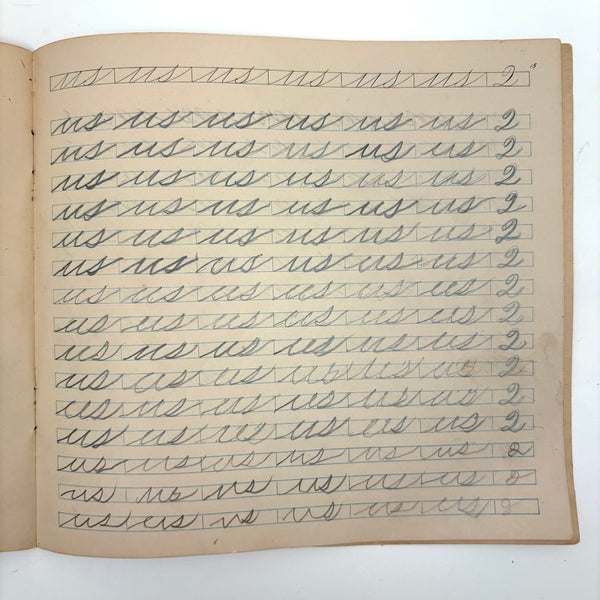 us us us us us us 2
us us us us us us 2
us us us us us us 2
us us us us us us 2
us us us us us us 2
us us us us us us 2
us us us us us us 2
us us us us us us 2
us us us us us us 2
us us us us us us 2
us us us us us us 2
us us us us us us 2
us us us us us us 2
us us us us us us 2
us us us us us us 2
us us us us us us 2